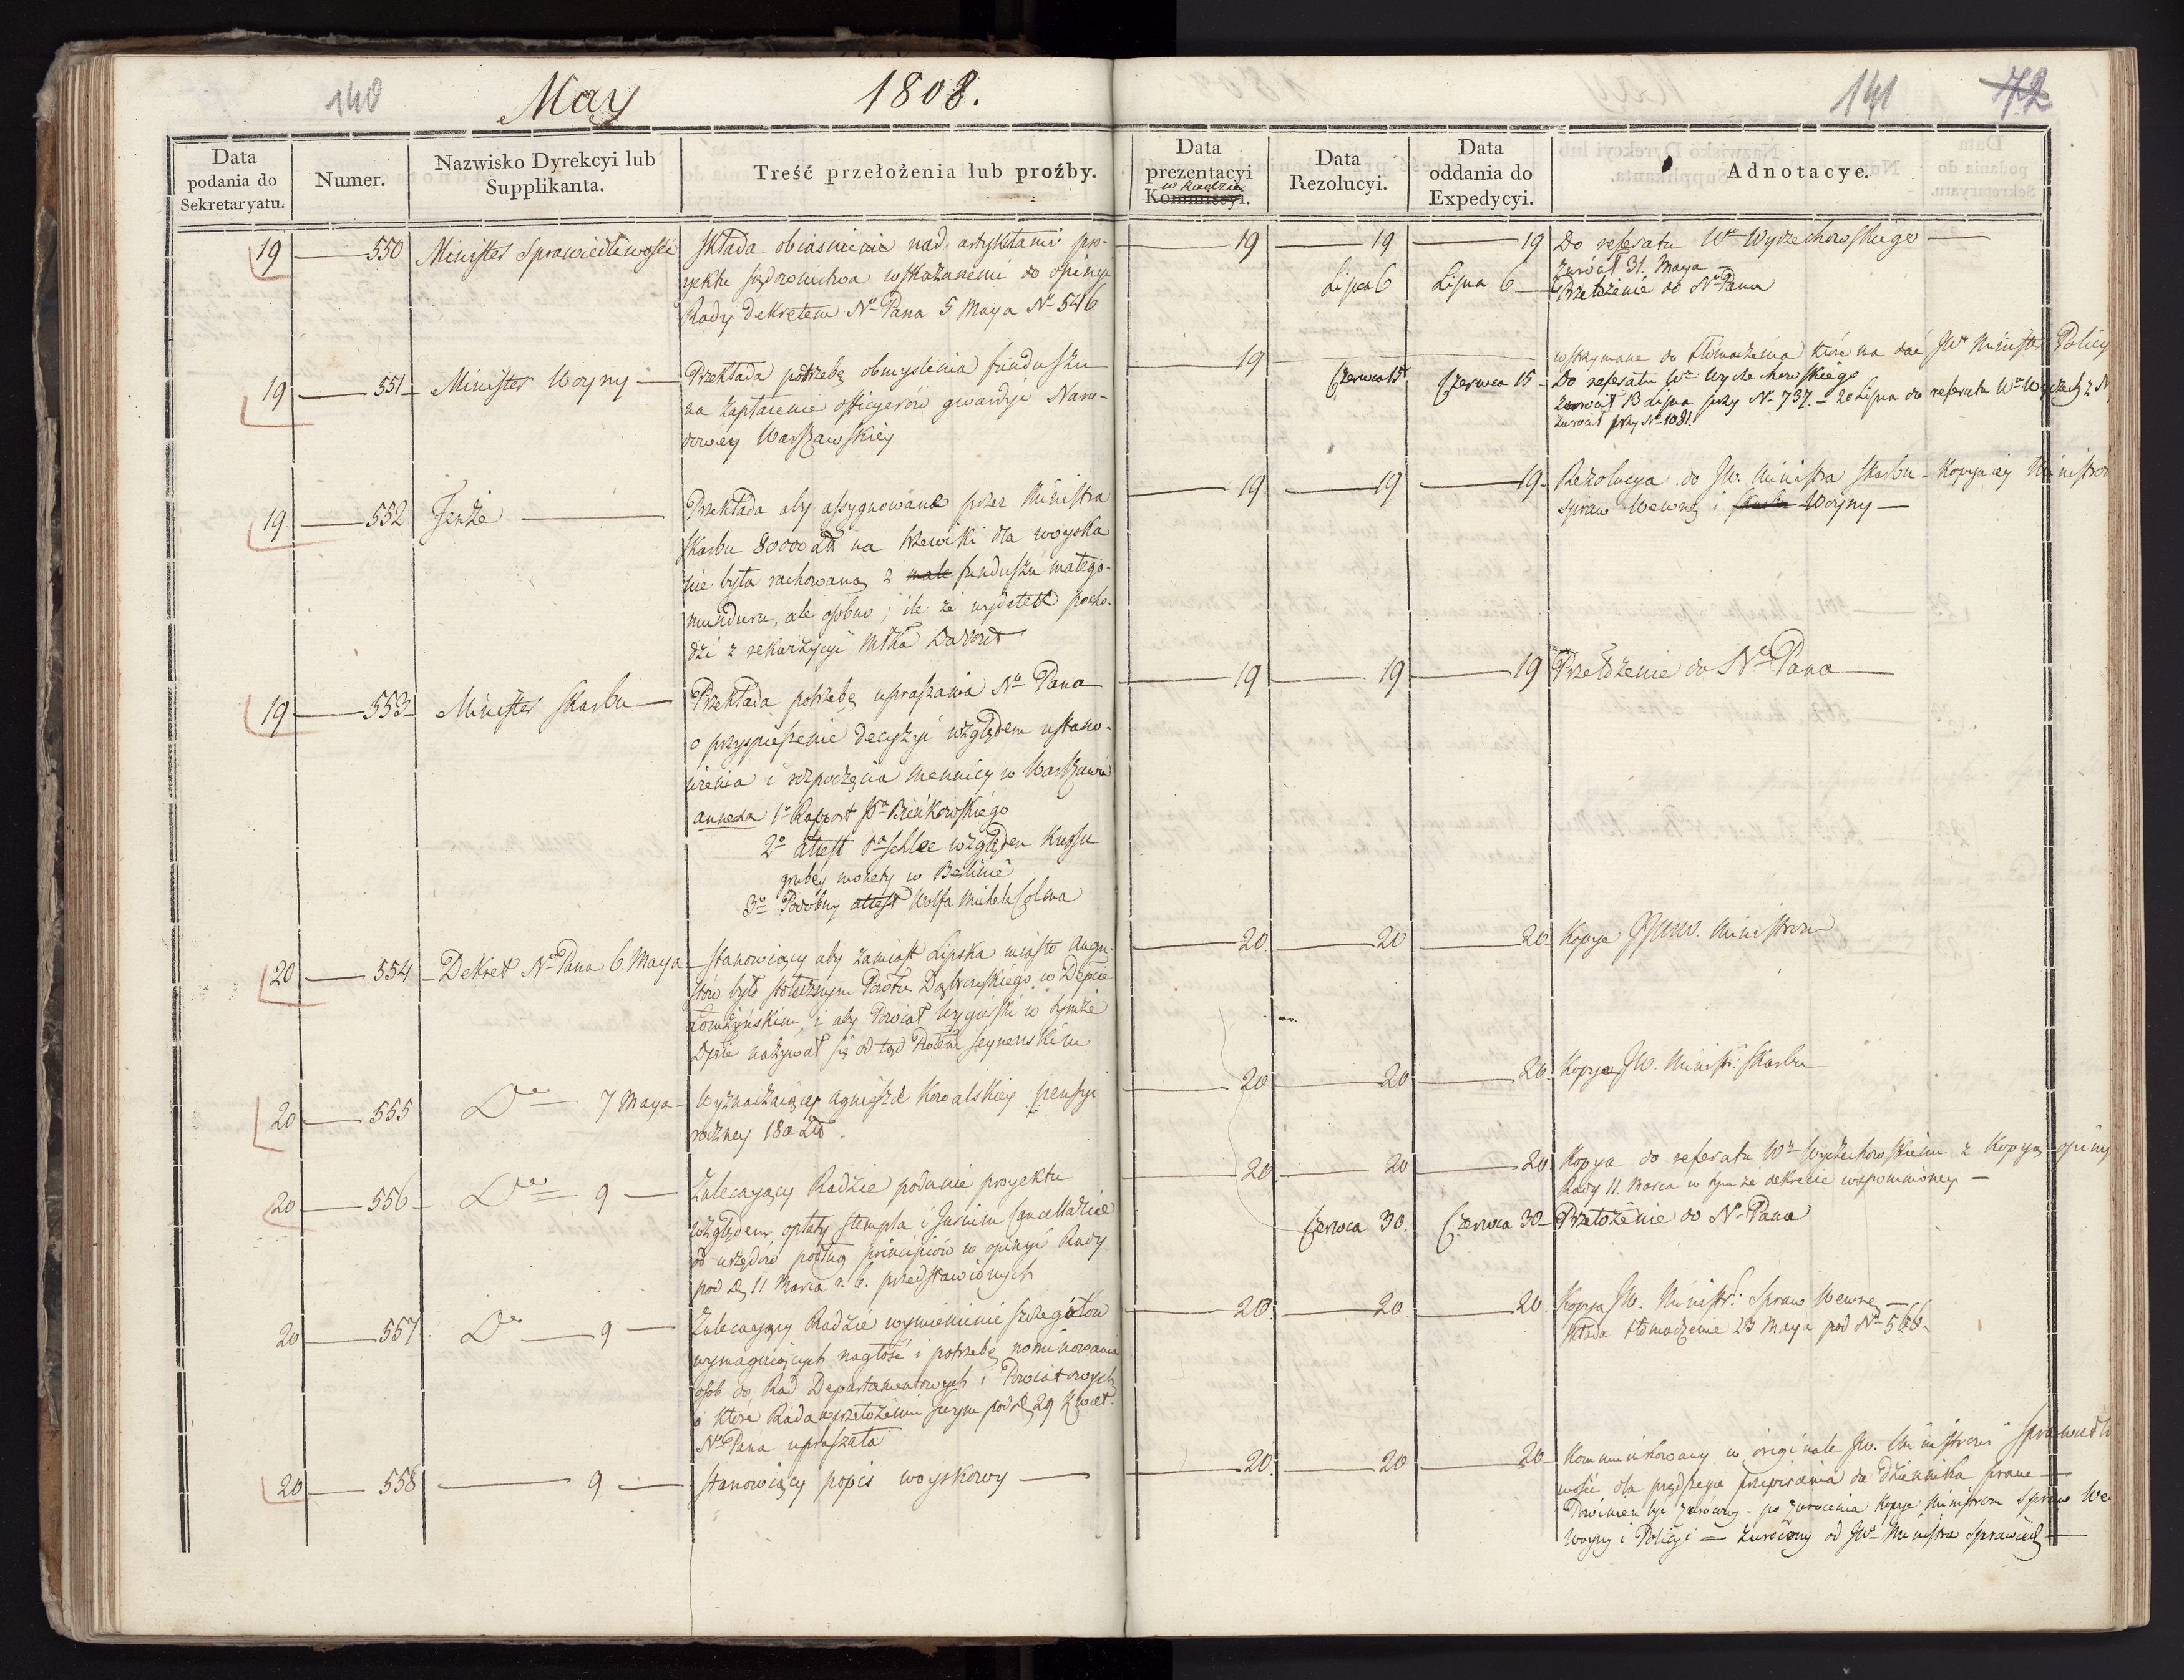 140 May 1808. 141 72
Data podania do Sekretaryatu.
Numer.
Nazwisko Dyrekcyi lub Supplikanta.
Treść przełożenia lub proźby.
Data prezentacyi w Radzie Kommissyi.
Data Rezolucyi.
Data oddania do Expedycyi.
Adnotacye.
19 — 550 Minister Sprawiedliwości
Składa obiasnienie nad artykułami pro-
jektu sądownictwa wskazanemi do opinii
Rady Dekretem No Pana 5 Maya No 546
19 — 19 — 19 Do referatu Wo Wyczechowskiego —
Zwrócił 31. Maya —
Lipca 6 Lipca 6 — Przełożenie do No Pana
19 — 551 — Minister Woyny —
Przekłada potrzebę obmyslenia funduszu
na zapłacenie officyerów gwardyi Naro-
dowey Warszawskiey
19 — wstrzymane do tłomaczenia które ma dać JW Minister Policyi
Czerwca 15. Czerwca 15 — Do referatu Wo Wyczechowskiego
Zwrócił 13 Lipca przy No 737. — 20 Lipca do referatu Wo
Zwrócił przy No 1081.
19 — 552 Tenże —
Przekłada aby assygnowane przez Ministra
Skarbu 80000 Złł na trzewiki dla woyska
nie była rachowaną z małe funduszu małego-
munduru, ale osobno; ile że wydatek pocho-
dzi z rekwizycyi Młka Davout
19 — 19 — 19 — Rezolucya do JW. Ministra Skarbu — Kopija iey Ministrów
Spraw Wewnę i Skarbu Woyny —
19 — 553 — Minister Skarbu —
Przekłada potrzebę upraszania No Pana
o przyspieszenie decyzyi względem ustano-
wienia i rozpoczęcia Mennicy w Warszawie
annexa 1o Rapport Po Bieńkowskiego
2o attest Po Schlee względem Kurssu
grubey monety w Berlinie
3o Podobny attest Wolfa
19 — 19 — 19 Przełożenie do No Pana —
20 — 554 — Dekret No Pana 6. Maya
— Stanowiący aby zamiast Lipska miasto Augu-
stów było stołecznym Powiatu Dąbrowskiego w Depcie
Łomżyńskim, i aby Powiat Wygierski w tymże
Dpcie nazywał się od tąd Powiatem Seynenskim
20 — 20 — 20 Kopye JJWW. Ministrom
20 — 555 Do — 7 Maya —
Wyznaczaiący Agnieszce Kowalskiey pensyi
roczney 180 Złł.
20 — 20 — 20. Kopya JW. Ministr. Skarbu
20 — 556 — Do — 9 —
Zalecaiący Radzie podanie proyektu
względem opłaty stempla i Jurium Cancellariae
od urzędów podług principiów w opinyi Rady
pod D. 11 Marca r. b. przedstawionych
20 — 20 — 20 Kopya do referatu Wo Wyczechowskiemu z kopyą opiny
Rady 11. Marca w tymże dekrecie wspomnioney —
Czerwca 30. Czerwca 30 — Przełożenie do No Pana
20 — 557 Do — 9 —
Zalecaiący Radzie wymienienie szczegółów
wymagaiących nagłość i potrzebę nominowania
osób do Rad Departamentowych i Powiatowych
o które Rada w przełożeniu swym pod D. 29 Kwiet.
No Pana upraszała
20 — 20 — 20. Kopya JW. Ministr. Spraw Wewnę —
Składa tłomaczenie 23 Maya pod No 566.
20 — 558 — 9 —
Stanowiący popis woyskowy —
20 — 20 — 20 — Kommunikowany w originale JW. Ministrowi Sprawiedli
wości dla prędszego przepisania do dziennika praw —
Powinien być zwrócony — po zwroceniu kopye Ministrom Spraw We
Woyny i Policyi — Zwrócony od JW Ministra Sprawiedl —